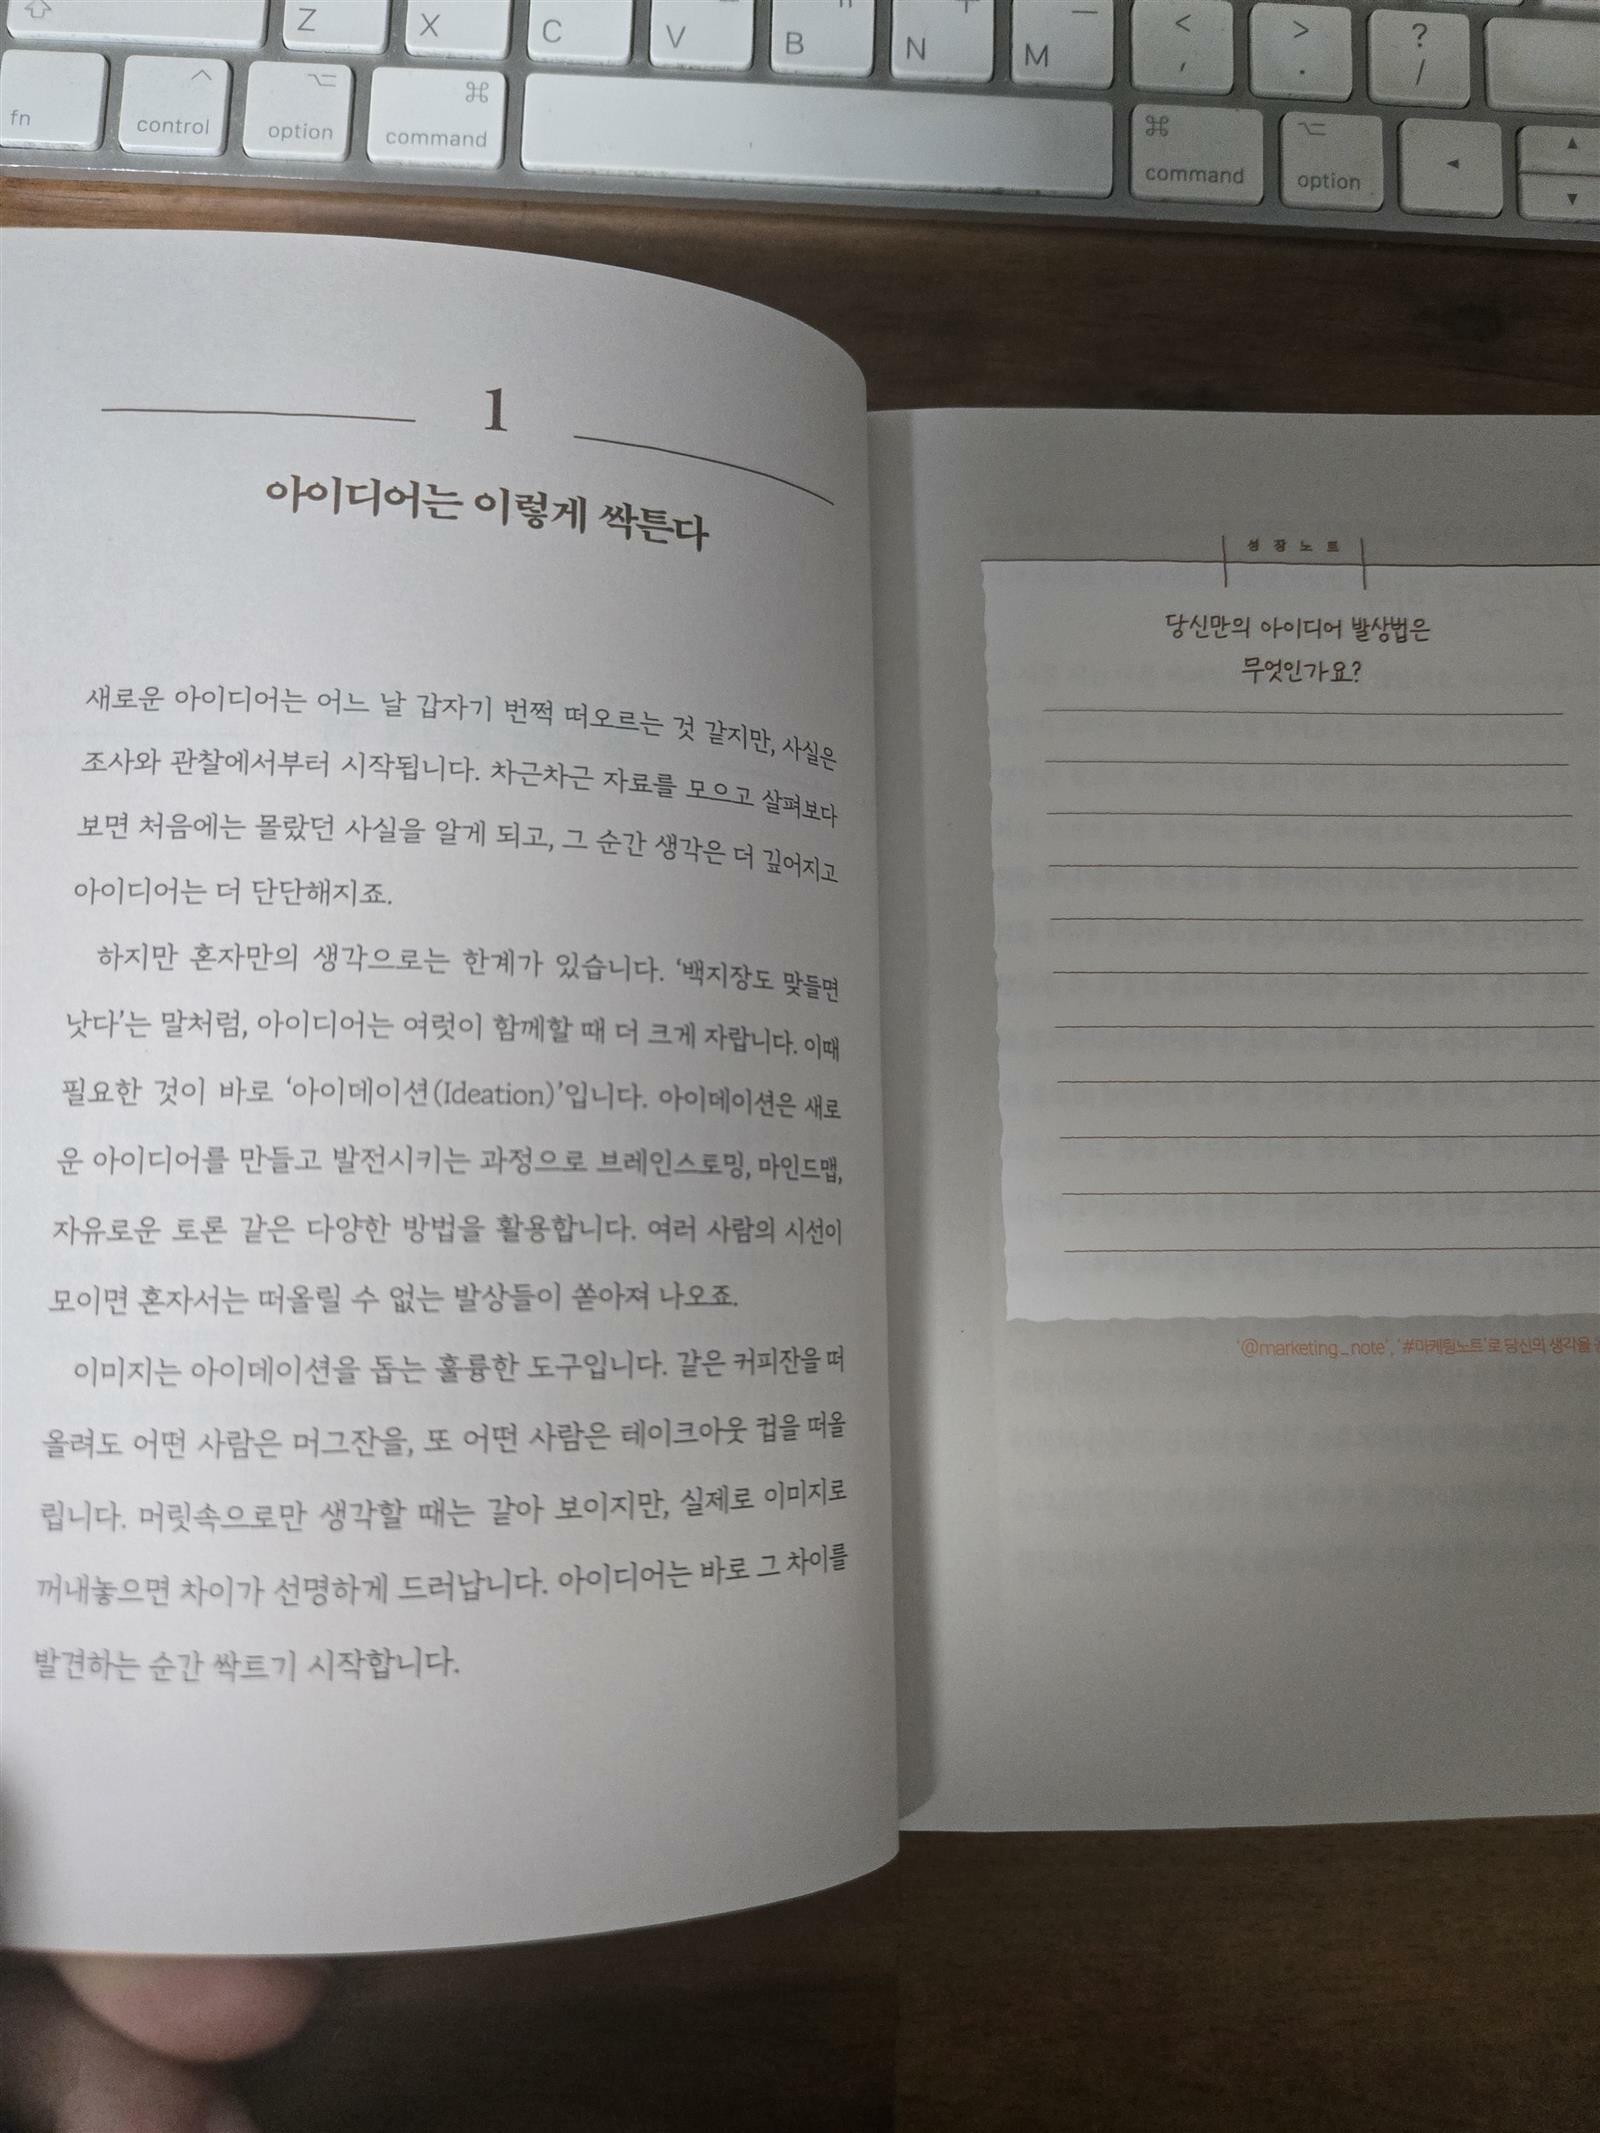 Z X C V B N M < , > . ? /
fn control option command command option
1
아이디어는 이렇게 싹튼다
새로운 아이디어는 어느 날 갑자기 번쩍 떠오르는 것 같지만, 사실은
조사와 관찰에서부터 시작됩니다. 차근차근 자료를 모으고 살펴보다
보면 처음에는 몰랐던 사실을 알게 되고, 그 순간 생각은 더 깊어지고
아이디어는 더 단단해지죠.
하지만 혼자만의 생각으로는 한계가 있습니다. ‘백지장도 맞들면
낫다’는 말처럼, 아이디어는 여럿이 함께할 때 더 크게 자랍니다. 이때
필요한 것이 바로 ‘아이데이션(Ideation)’입니다. 아이데이션은 새로
운 아이디어를 만들고 발전시키는 과정으로 브레인스토밍, 마인드맵,
자유로운 토론 같은 다양한 방법을 활용합니다. 여러 사람의 시선이
모이면 혼자서는 떠올릴 수 없는 발상들이 쏟아져 나오죠.
이미지는 아이데이션을 돕는 훌륭한 도구입니다. 같은 커피잔을 떠
올려도 어떤 사람은 머그잔을, 또 어떤 사람은 테이크아웃 컵을 떠올
립니다. 머릿속으로만 생각할 때는 같아 보이지만, 실제로 이미지로
꺼내놓으면 차이가 선명하게 드러납니다. 아이디어는 바로 그 차이를
발견하는 순간 싹트기 시작합니다.
성장노트
당신만의 아이디어 발상법은
무엇인가요?
‘@marketing_note’, ‘#마케팅노트’로 당신의 생각을